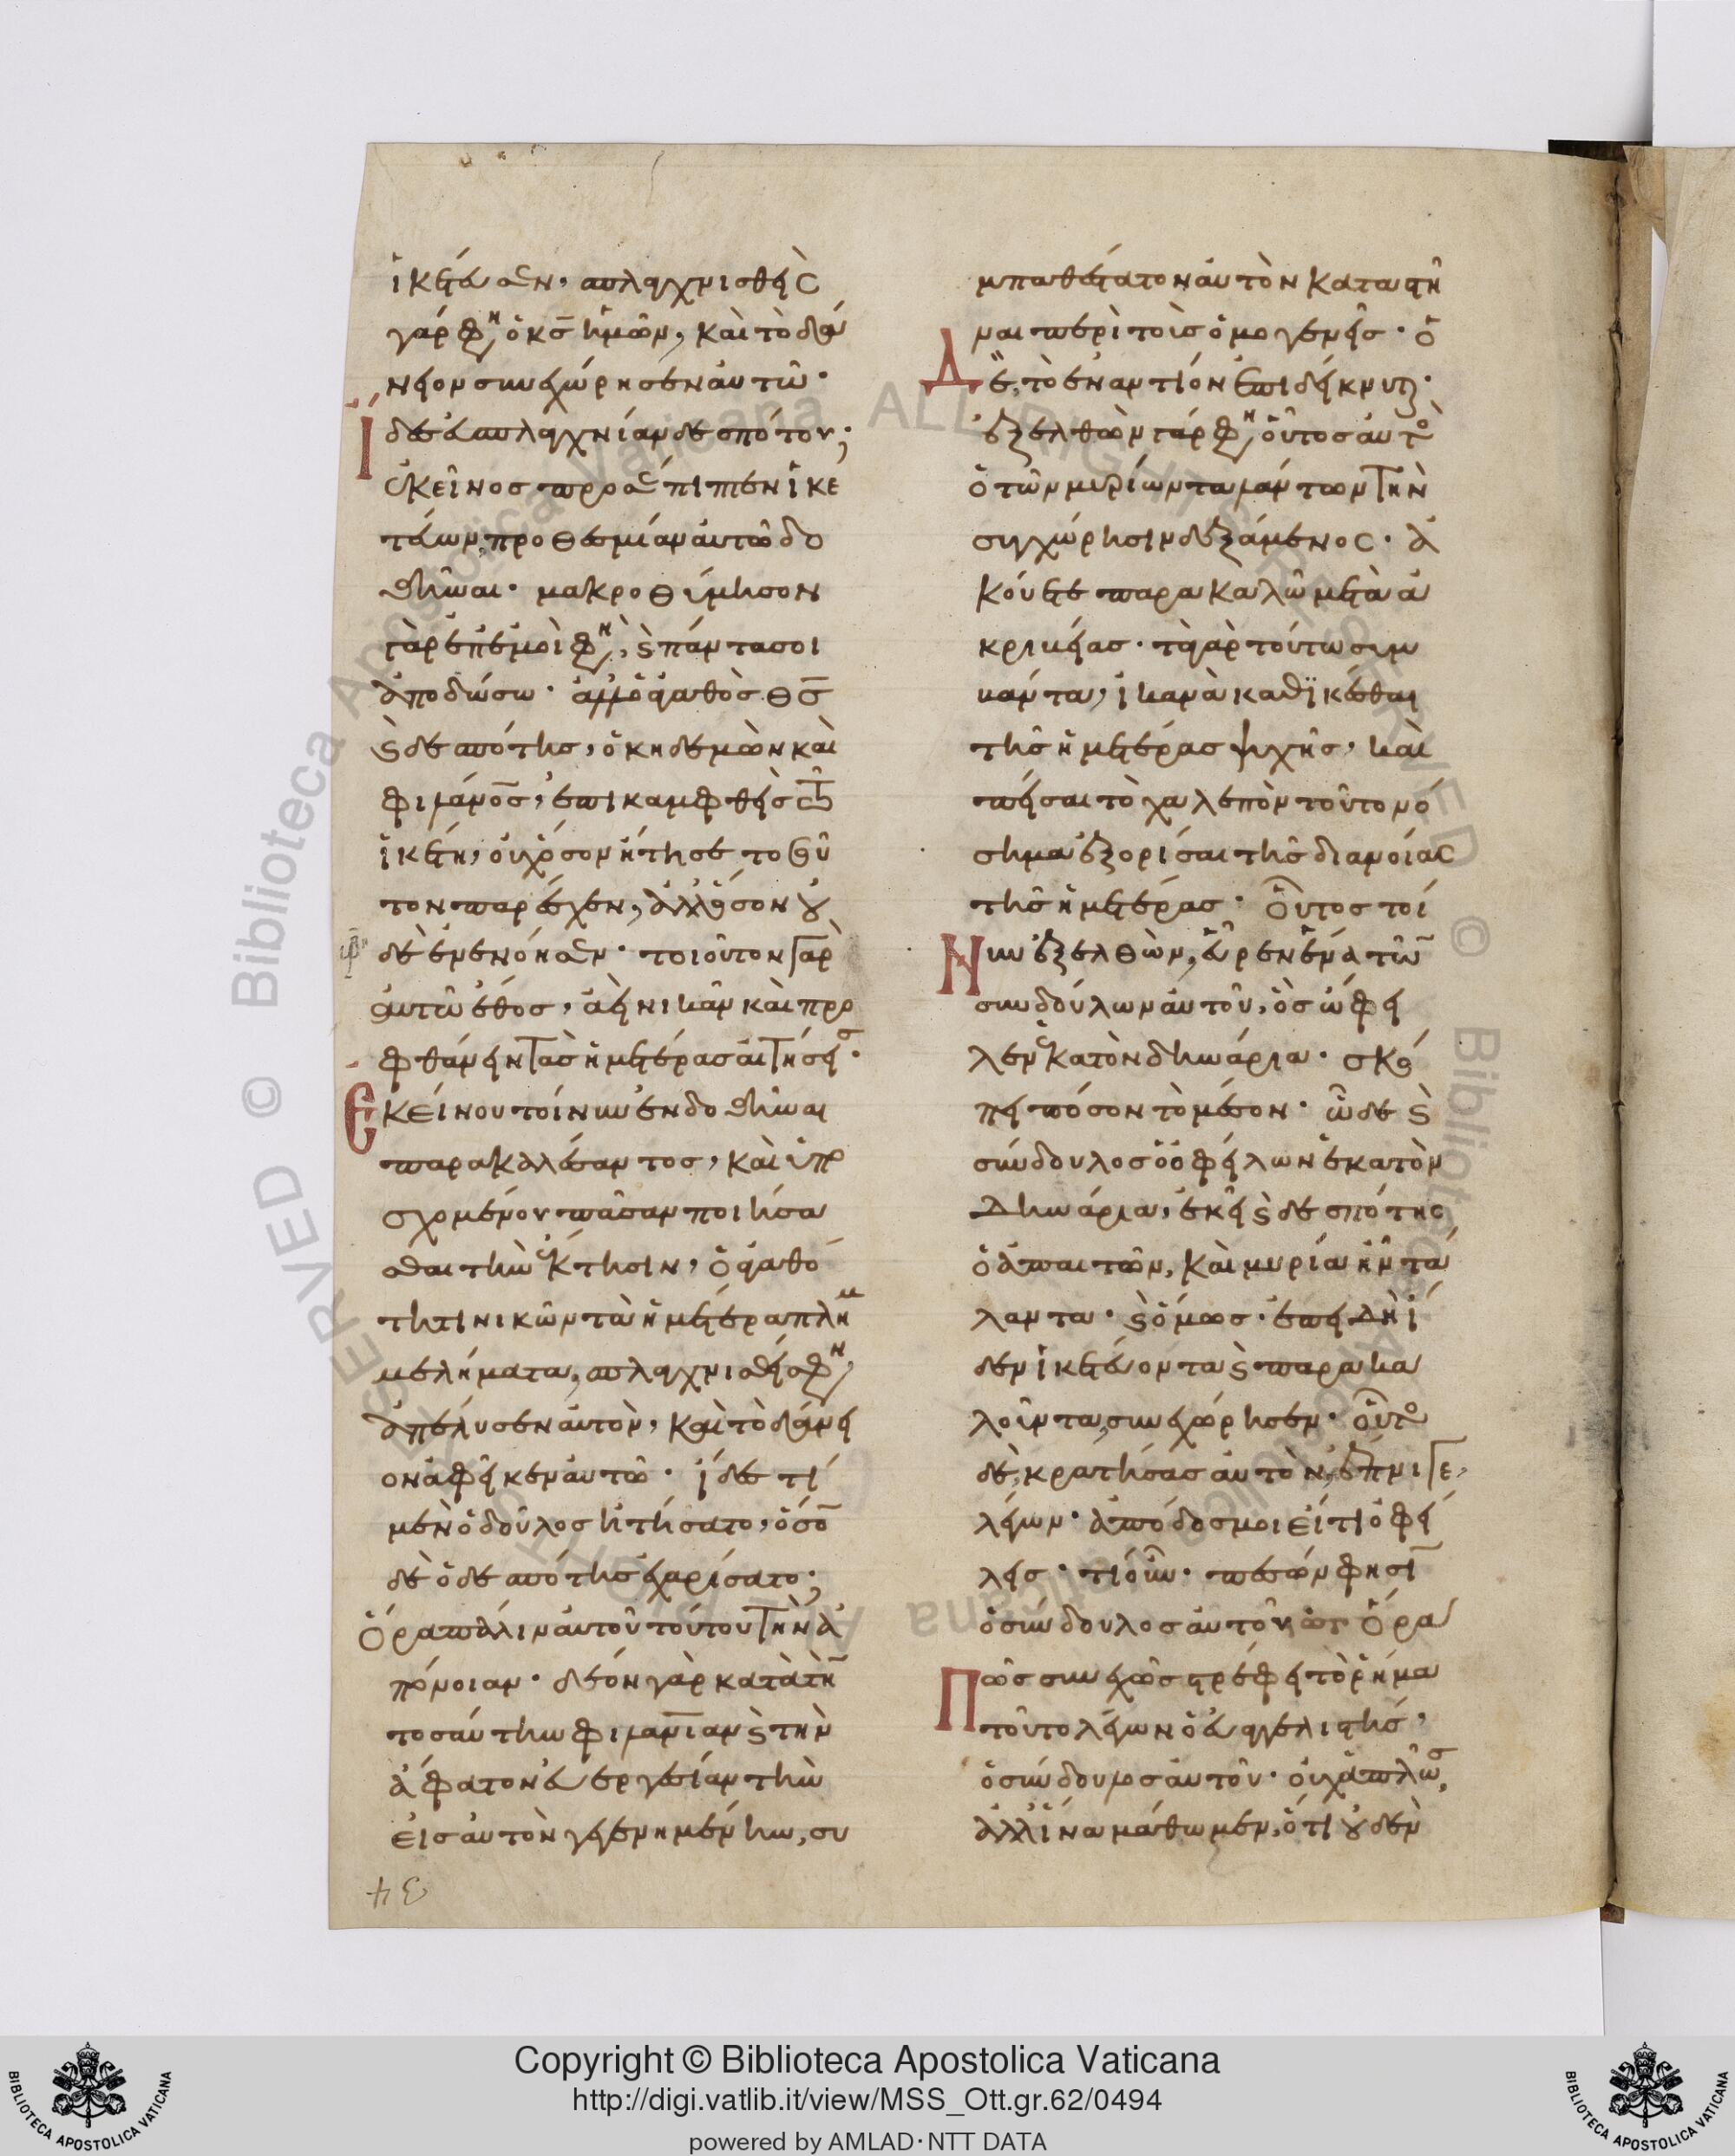 ἱκετεύειν· σπλαγχνισθεὶς
γάρ φη, ὁ κς ἡμῶν, καὶ τὸ δά
νειον συνεχώρησεν αὐτῶ·
Ἴδες εὐσπλαγχνίαν δεσπότου;
ἐκεῖνος προσέπιπτεν ἱκε
τεύων, προθεσμίαν αὐτῶ δο
θῆναι· μακροθύμησον
γὰρ ἐπ ἐμοὶ φη, καὶ πάντα σοι
ἀποδώσω· ἀλλ ὁ ἀγαθὸς θς
καὶ δεσπότης, ὁ κηδεμὼν καὶ
φιλάνος, ἐπικαμφθεὶς τῆ
ἱκετεία, οὐχ ὅσον ἤτησε τοσοῦ
τον παρέσχεν, ἀλλ ὅσον οὐ
δὲ ἐνενόησεν· τοιοῦτον γὰρ
αὐτῶ ἔθος, ἀεὶ νικᾶν καὶ προ
φθάνειν τὰς ἡμετέρας αἰτήσεις·
Ἐκείνου τοίνυν ἐνδοθῆναι
παρακαλέσαντος, καὶ ὑπο
σχομένου πᾶσαν ποιήσα
σθαι τὴν ἔκτησιν, ὁ ἀγαθό
τητι νικῶν τὰ ἡμέτερα πλημ
μελήματα, σπλαγχνισθείς φη,
ἀπέλυσεν αὐτὸν, καὶ τὸ δάνει
ον ἀφῆκεν αὐτῶ· ἴδες τί
μὲν ὁ δοῦλος ἠτήσατο, ὅσον
δὲ ὁ δεσπότης ἐχαρίσατο;
Ὅρα πάλιν αὐτοῦ τούτου τὴν ἀ
πόνοιαν· δέον γὰρ κατὰ τὴν
τοσαύτην φιλανίαν καὶ τὴν
ἄφατον εὐεργεσίαν τὴν
εἰς αὐτὸν γεγενημένην, συ
μπαθέστατον αὐτὸν καταστῆ
ναι περὶ τοὺς ὁμογενεῖς· ὁ
Δὲ, τὸ ἐναντίον ἐπιδείκνυται·
ἐξελθὼν γάρ φη, οὗτος αὐτὸς
ὁ τῶν μυρίων ταλάντων τὴν
συγχώρησιν δεξάμενος· ἀ
κούετε παρακαλῶ μετὰ ἀ
κριβείας· τὰ γὰρ τούτω συμ
βάντα, ἱκανὰ καθικέσθαι
τῆς ἡμετέρας ψυχῆς, καὶ
πεῖσαι τὸ χαλεπὸν τοῦτο νό
σημα ἐξορίσαι τῆς διανοίας
τῆς ἡμετέρας· Οὗτος τοί
Νυν ἐξελθὼν, εὗρεν ἕνα τῶν
συνδούλων αὐτοῦ, ὃς ὤφει
λεν ἑκατὸν δηνάρια· σκό
πει πόσον τὸ μέσον· ὧδε καὶ
σύνδουλος ὁ ὀφείλων ἑκατὸν
δηνάρια, ἐκεῖ καὶ δεσπότης
ὁ ἀπαιτῶν, καὶ μυρία ἦν τά
λαντα· καὶ ὅμως· ἐπειδὴ ἴ
δεν ἱκετεύοντα καὶ παρακα
λοῦντα, συνεχώρησεν· οὗτος
δὲ, κρατήσας αὐτὸν, ἔπνιγε,
λέγων· ἀπόδος μοι εἴ τι ὀφεί
λεις· τί οὖν· πεσών φησιν
ὁ σύνδουλος αὐτοῦ Ὅρα
Πῶς συνεχῶς στρέφει τὸ ῥῆμα
τοῦτο λέγων ὁ εὐαγγελιστής,
ὁ σύνδουλος αὐτοῦ· οὐχ ἁπλῶς,
ἀλλ ἵνα μάθωμεν, ὅτι οὐδὲν
34
Copyright © Biblioteca Apostolica Vaticana
http://digi.vatlib.it/view/MSS_Ott.gr.62/0494
powered by AMLAD·NTT DATA